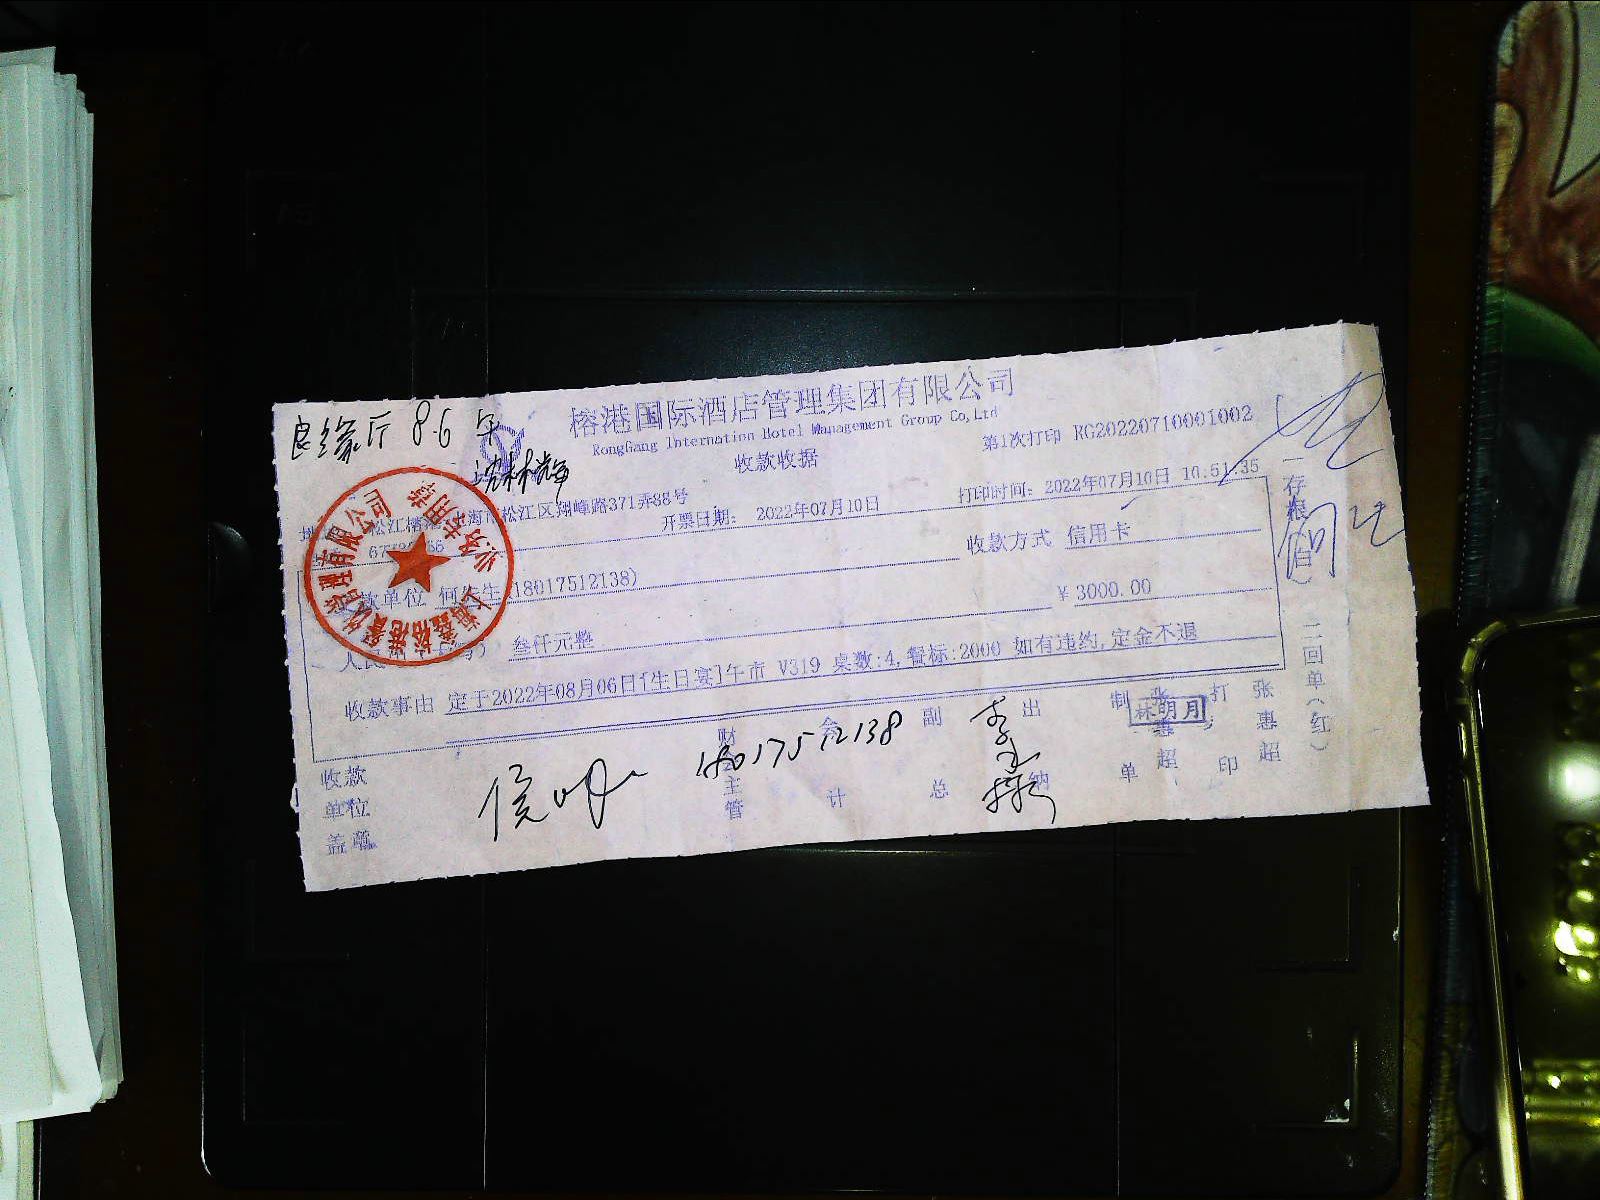 良缘厅 8.6 午
榕港国际酒店管理集团有限公司
RongGang Internation Hotel Management Group Co,Ltd
收款收据
第1次打印 RG20220710001002
松江榕港 上海市松江区翔峰路371弄88号
开票日期: 2022年07月10日
打印时间: 2022年07月10日 10:51:35
收款方式 信用卡
款单位 何先生 18017512138)
叁仟元整
¥ 3000.00
收款事由 定于2022年08月06日[生日宴]午市 V319 桌数:4,餐标:2000 如有违约,定金不退
收款单位盖章
财 主管
会计
副总
出纳
制单 张惠超
林明月
打印 张惠超
18017512138
一存根(白) 二回单(红)
业务专用章